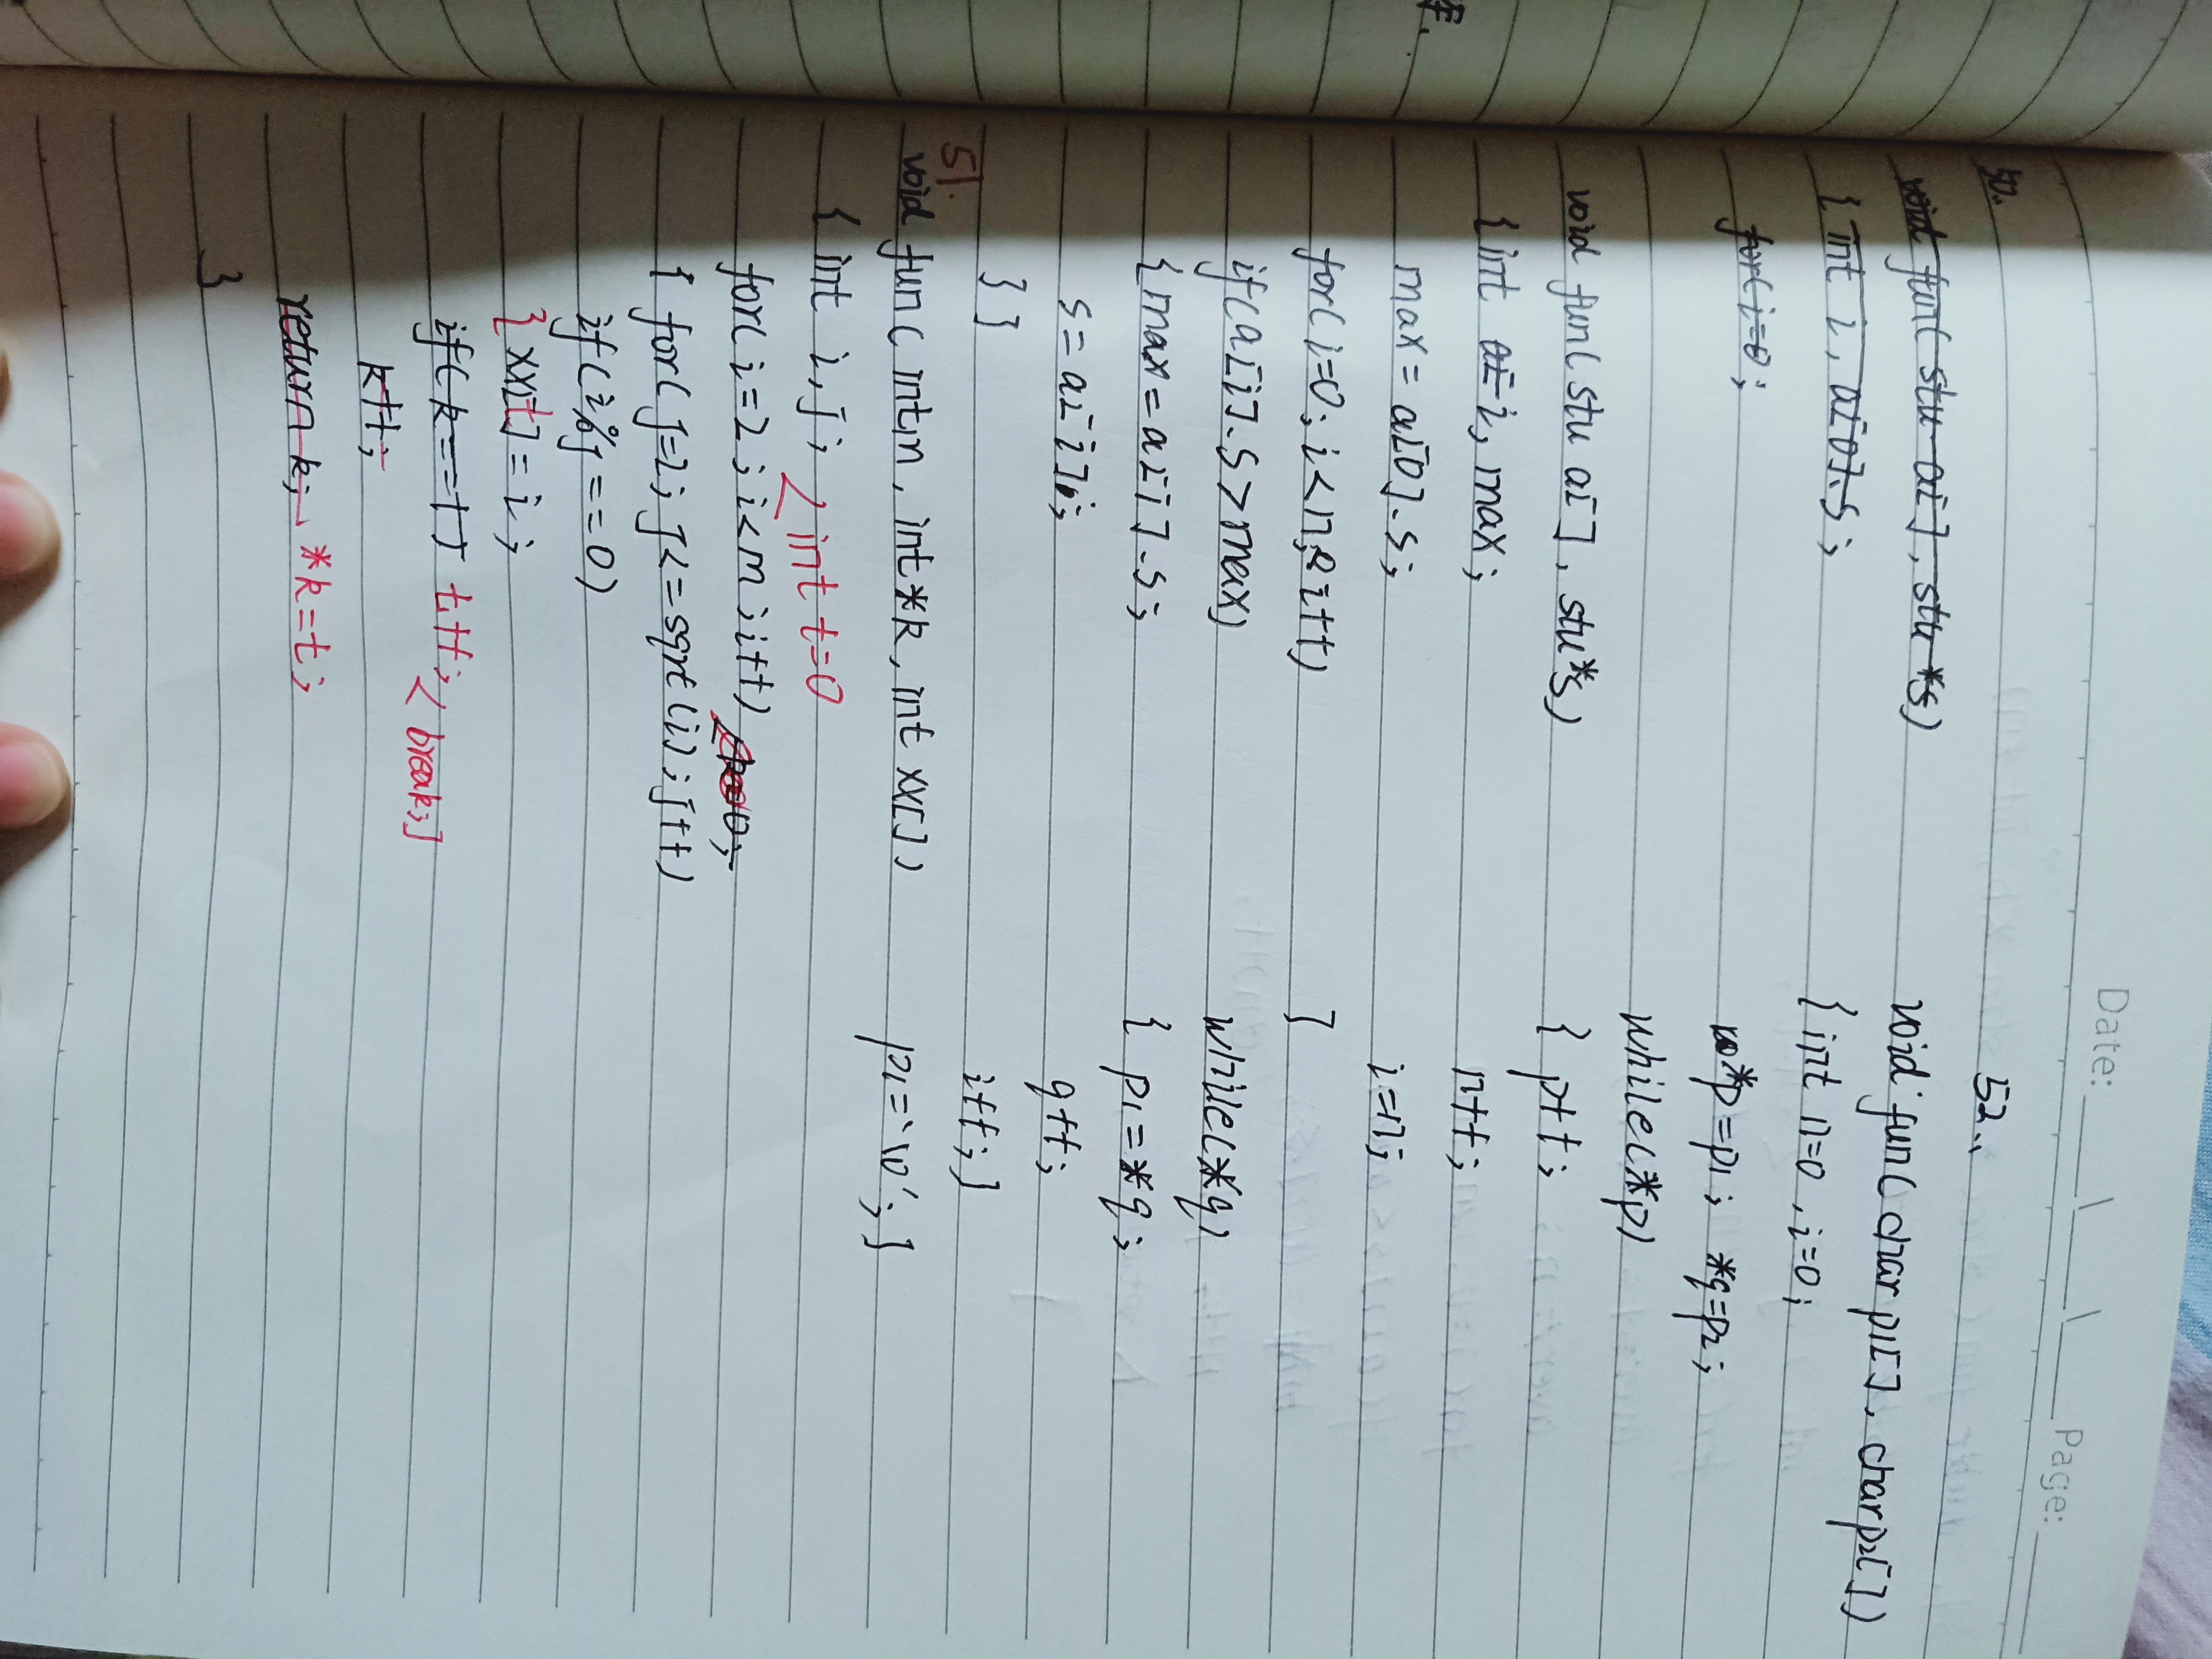 Date: Page:
50.
void fun(stu a[], stu *s)
{int i, a[0].s;
for(i=0;
void fun(stu a[], stu*s)
{int a[ i, max;
max = a[0].s;
for(i=0; i<n; i++)
if(a[i].s>max)
{max = a[i].s;
s = a[i];
}}
51.
void fun(int m, int *k, int xx[])
{int i, j; int t=0
for(i=2; i<m; i++)
{for(j=2; j<=sqrt(i); j++)
if(i%j==0)
{xx[t]=i;
if(k== t++; break;}
k++;
return k; *k=t;
}
52.
void fun(char p1[], char p2[])
{int n=0, i=0;
*p=p1; *q=p2;
while(*p)
{p++;
n++;
i=n;
}
while(*q)
{p1=*q;
q++;
i++;}
p1='\0';}